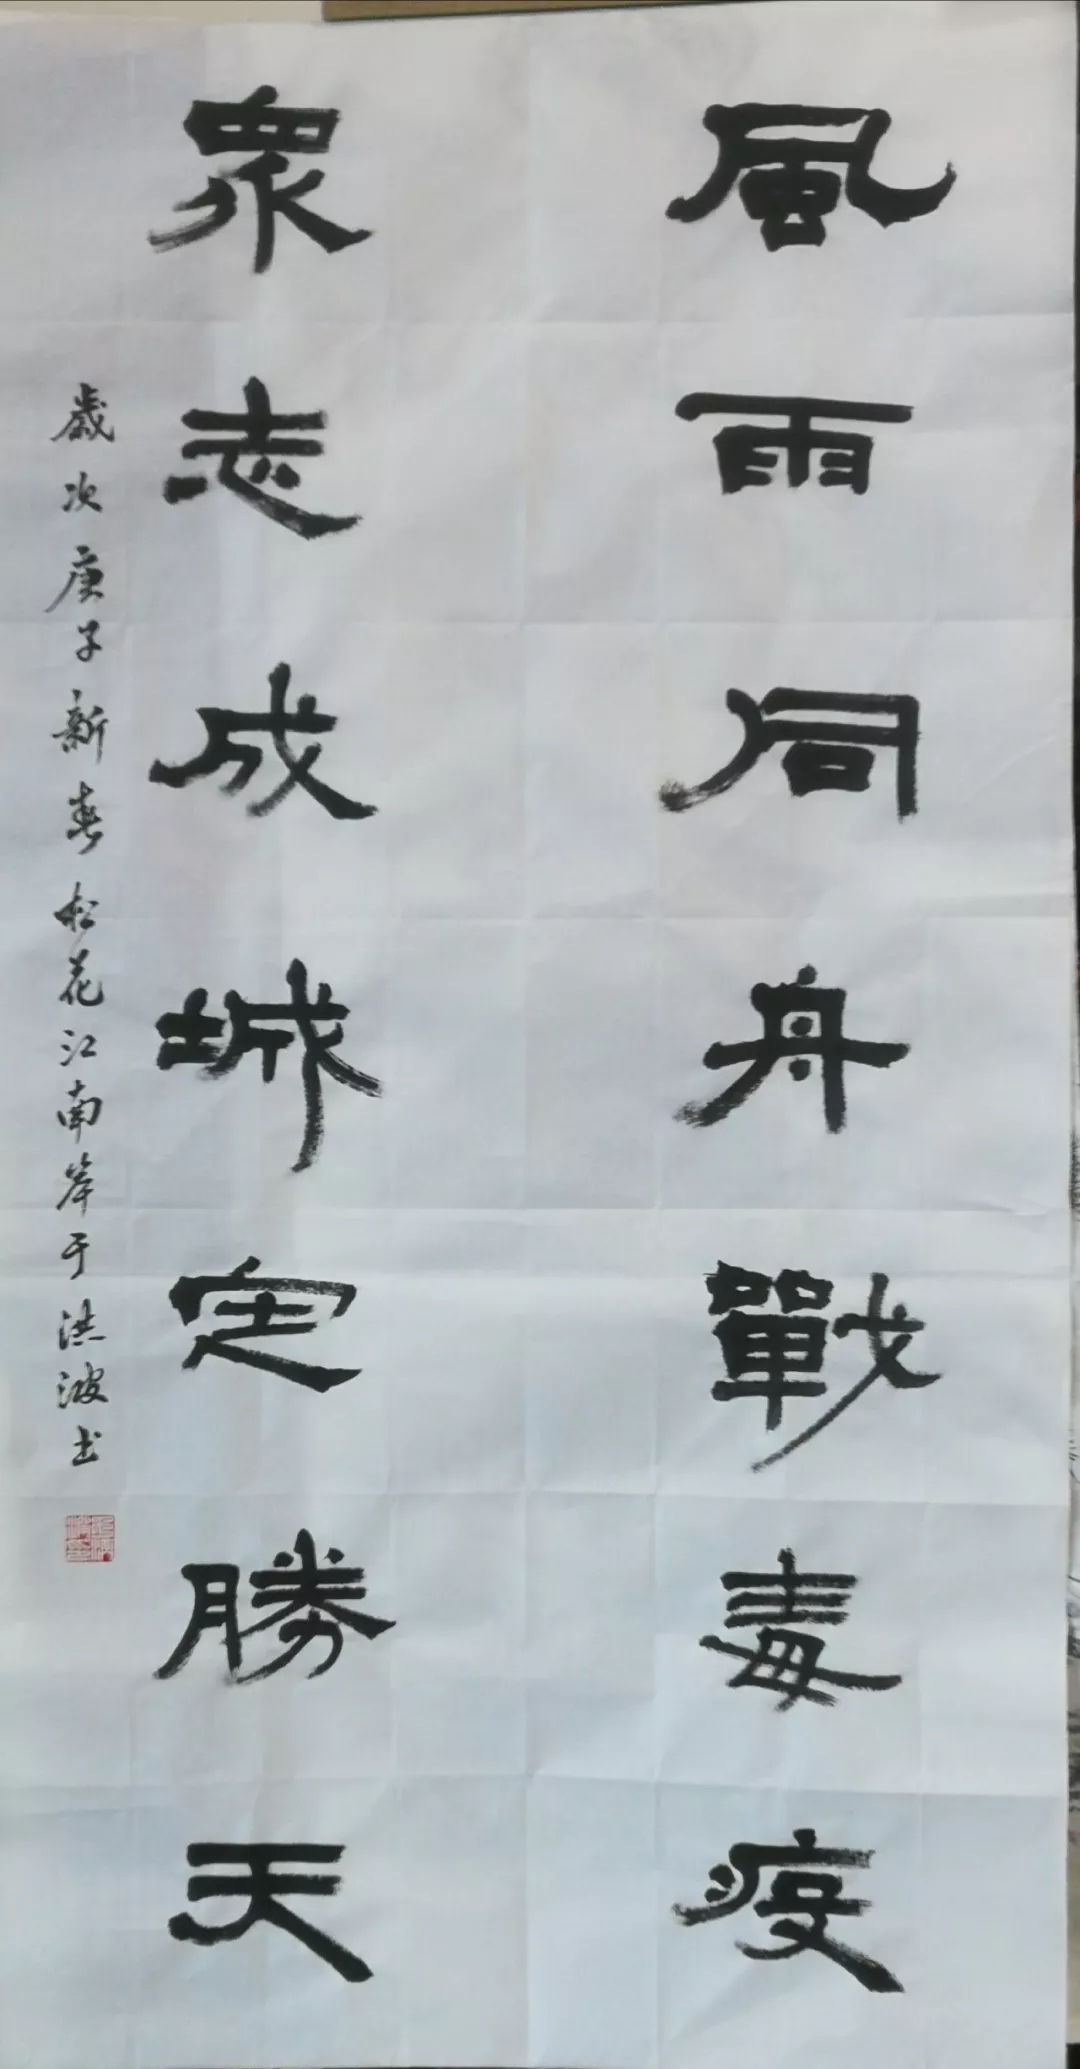 風雨同舟戰毒疫
眾志成城定勝天
歲次庚子新春松花江南岸于洪波书